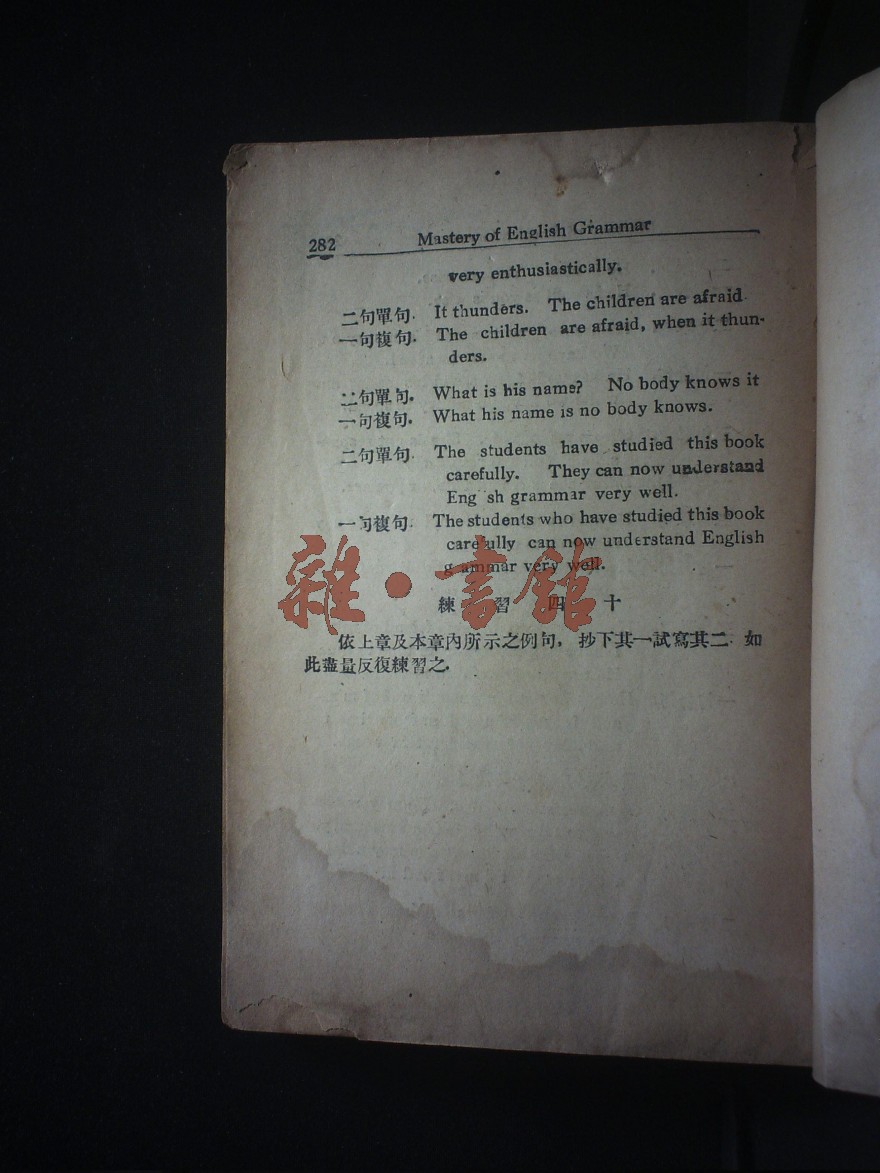 282 Mastery of English Grammar
very enthusiastically.
二句單句. It thunders. The children are afraid
一句複句. The children are afraid, when it thun-
ders.
二句單句. What is his name? No body knows it
一句複句. What his name is no body knows.
二句單句. The students have studied this book
carefully. They can now understand
Eng sh grammar very well.
一句複句. The students who have studied this book
carefully can now understand English
g ammar very well.
雜·書館
練習四十
依上章及本章內所示之例句, 抄下其一試寫其二. 如
此盡量反復練習之.